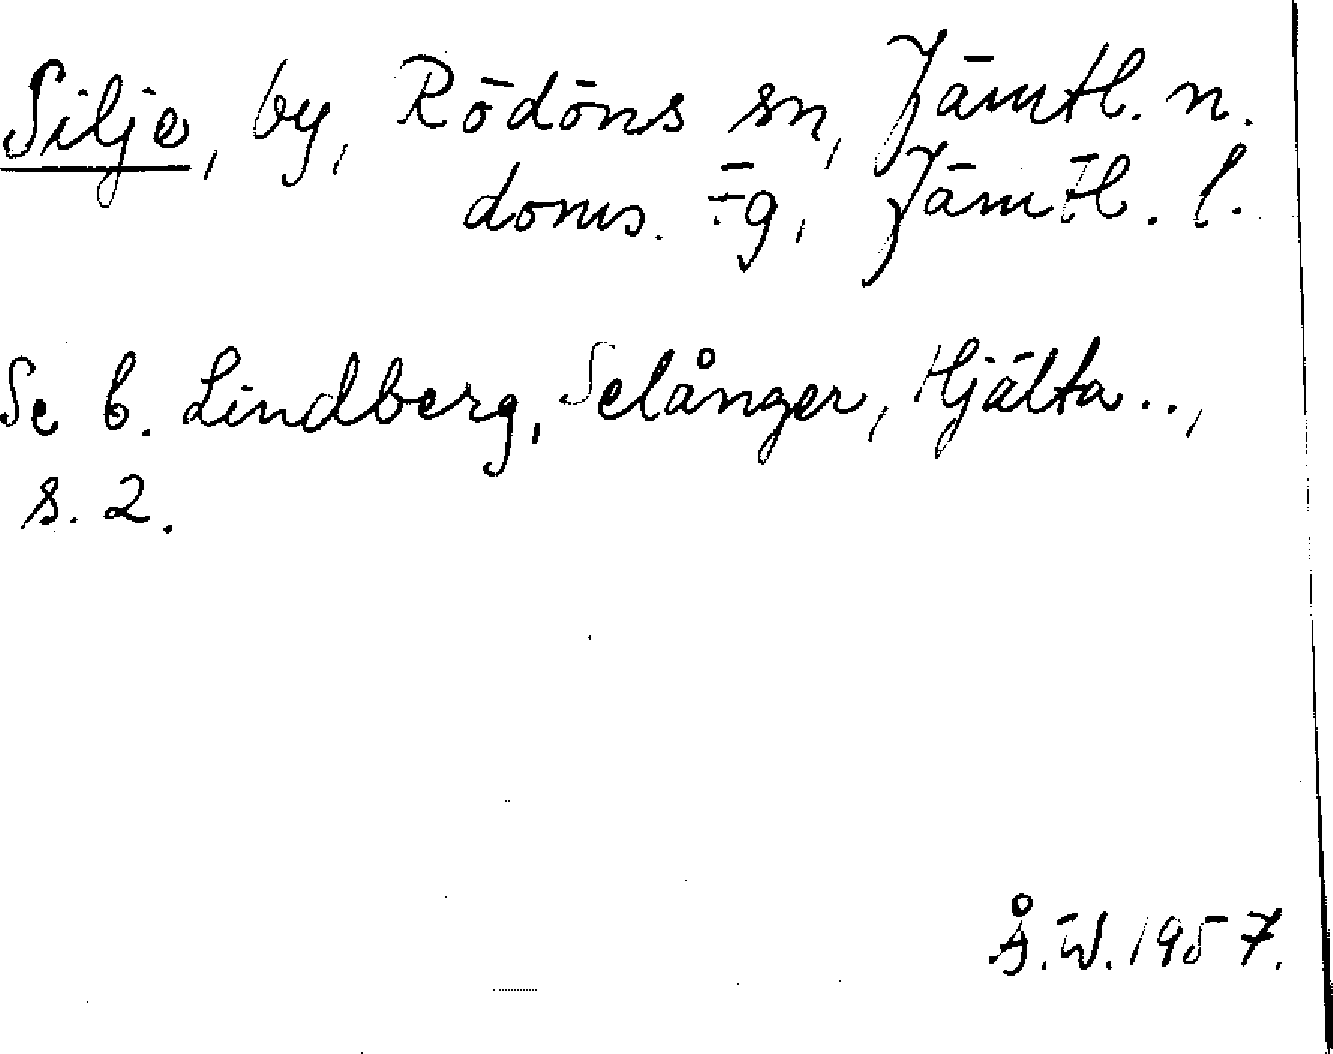 Silje, by, Rödöns sn, Jämtl. n.
doms. tg, Jämtl. l.
Se C. Lindberg, Selånger, Hjälta..,
s. 2.
Å.W. 1957.